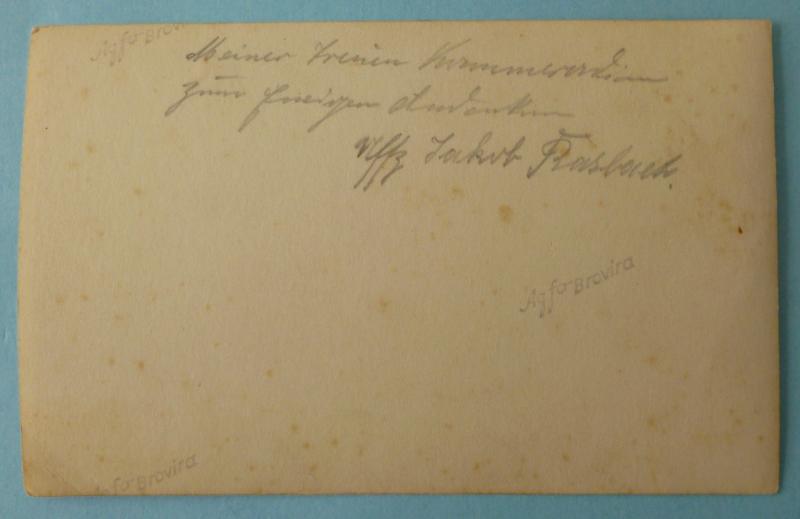 Agfa-Brovi
Meiner treuen Kammeradin
zum Ewigen Andenken
Uffz Jakob Rasbach.
Agfa-Brovira
Agfa-Brovira